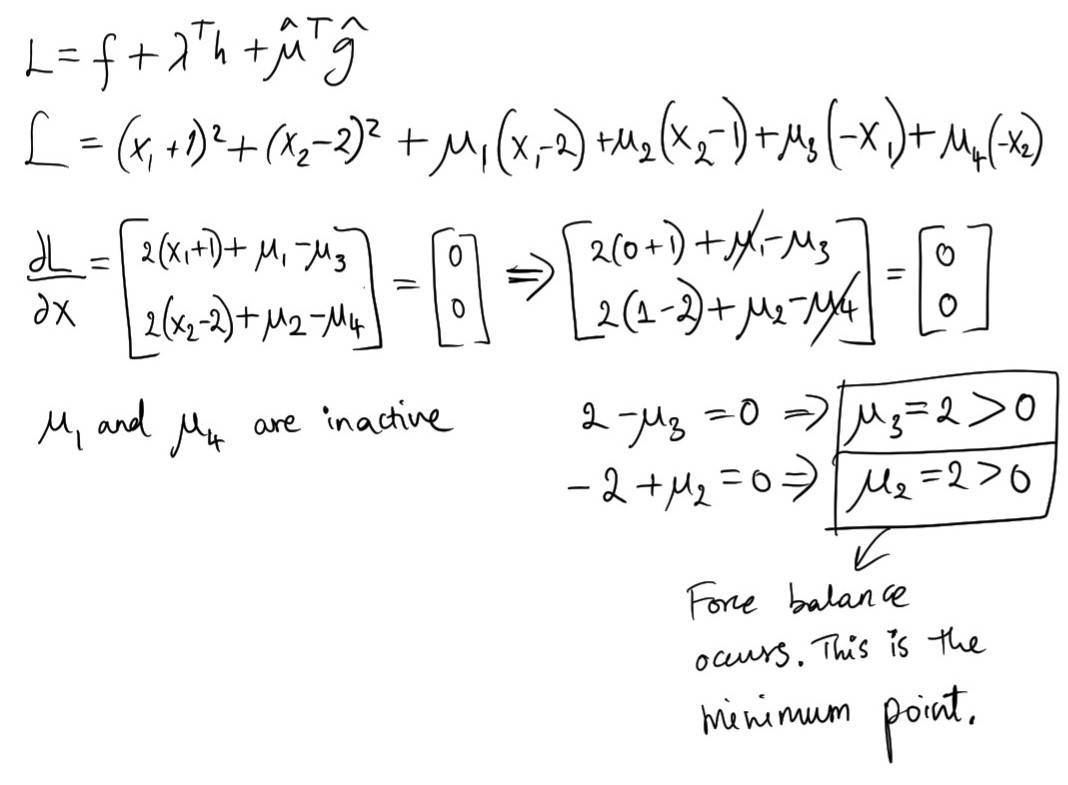 L = f + λᵀh + μ̂ᵀĝ
L = (x₁+1)² + (x₂-2)² + μ₁(x₁-2) + μ₂(x₂-1) + μ₃(-x₁) + μ₄(-x₂)
∂L/∂x = [2(x₁+1) + μ₁ - μ₃; 2(x₂-2) + μ₂ - μ₄] = [0; 0] ⇒ [2(0+1) + μ̸₁ - μ₃; 2(1-2) + μ₂ - μ̸₄] = [0; 0]
μ₁ and μ₄ are inactive
2 - μ₃ = 0 ⇒ μ₃ = 2 > 0
-2 + μ₂ = 0 ⇒ μ₂ = 2 > 0
Force balance
occurs. This is the
minimum point.